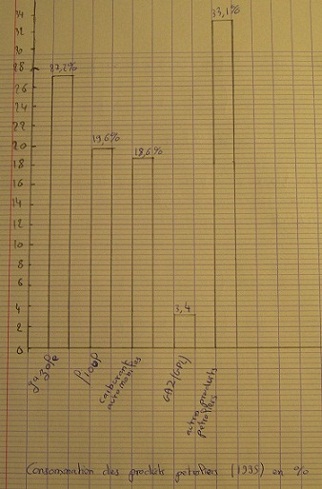 34
32
28
26
24
22
20
18
16
14
12
10
4
2
0
27,2%
19,6%
18,6%
3,4
33,1%
gazole
fioul
carburant
automobiles
GAZ(GPL)
autre produits
petroliers
Consommation des produits petroliers (1995) en %